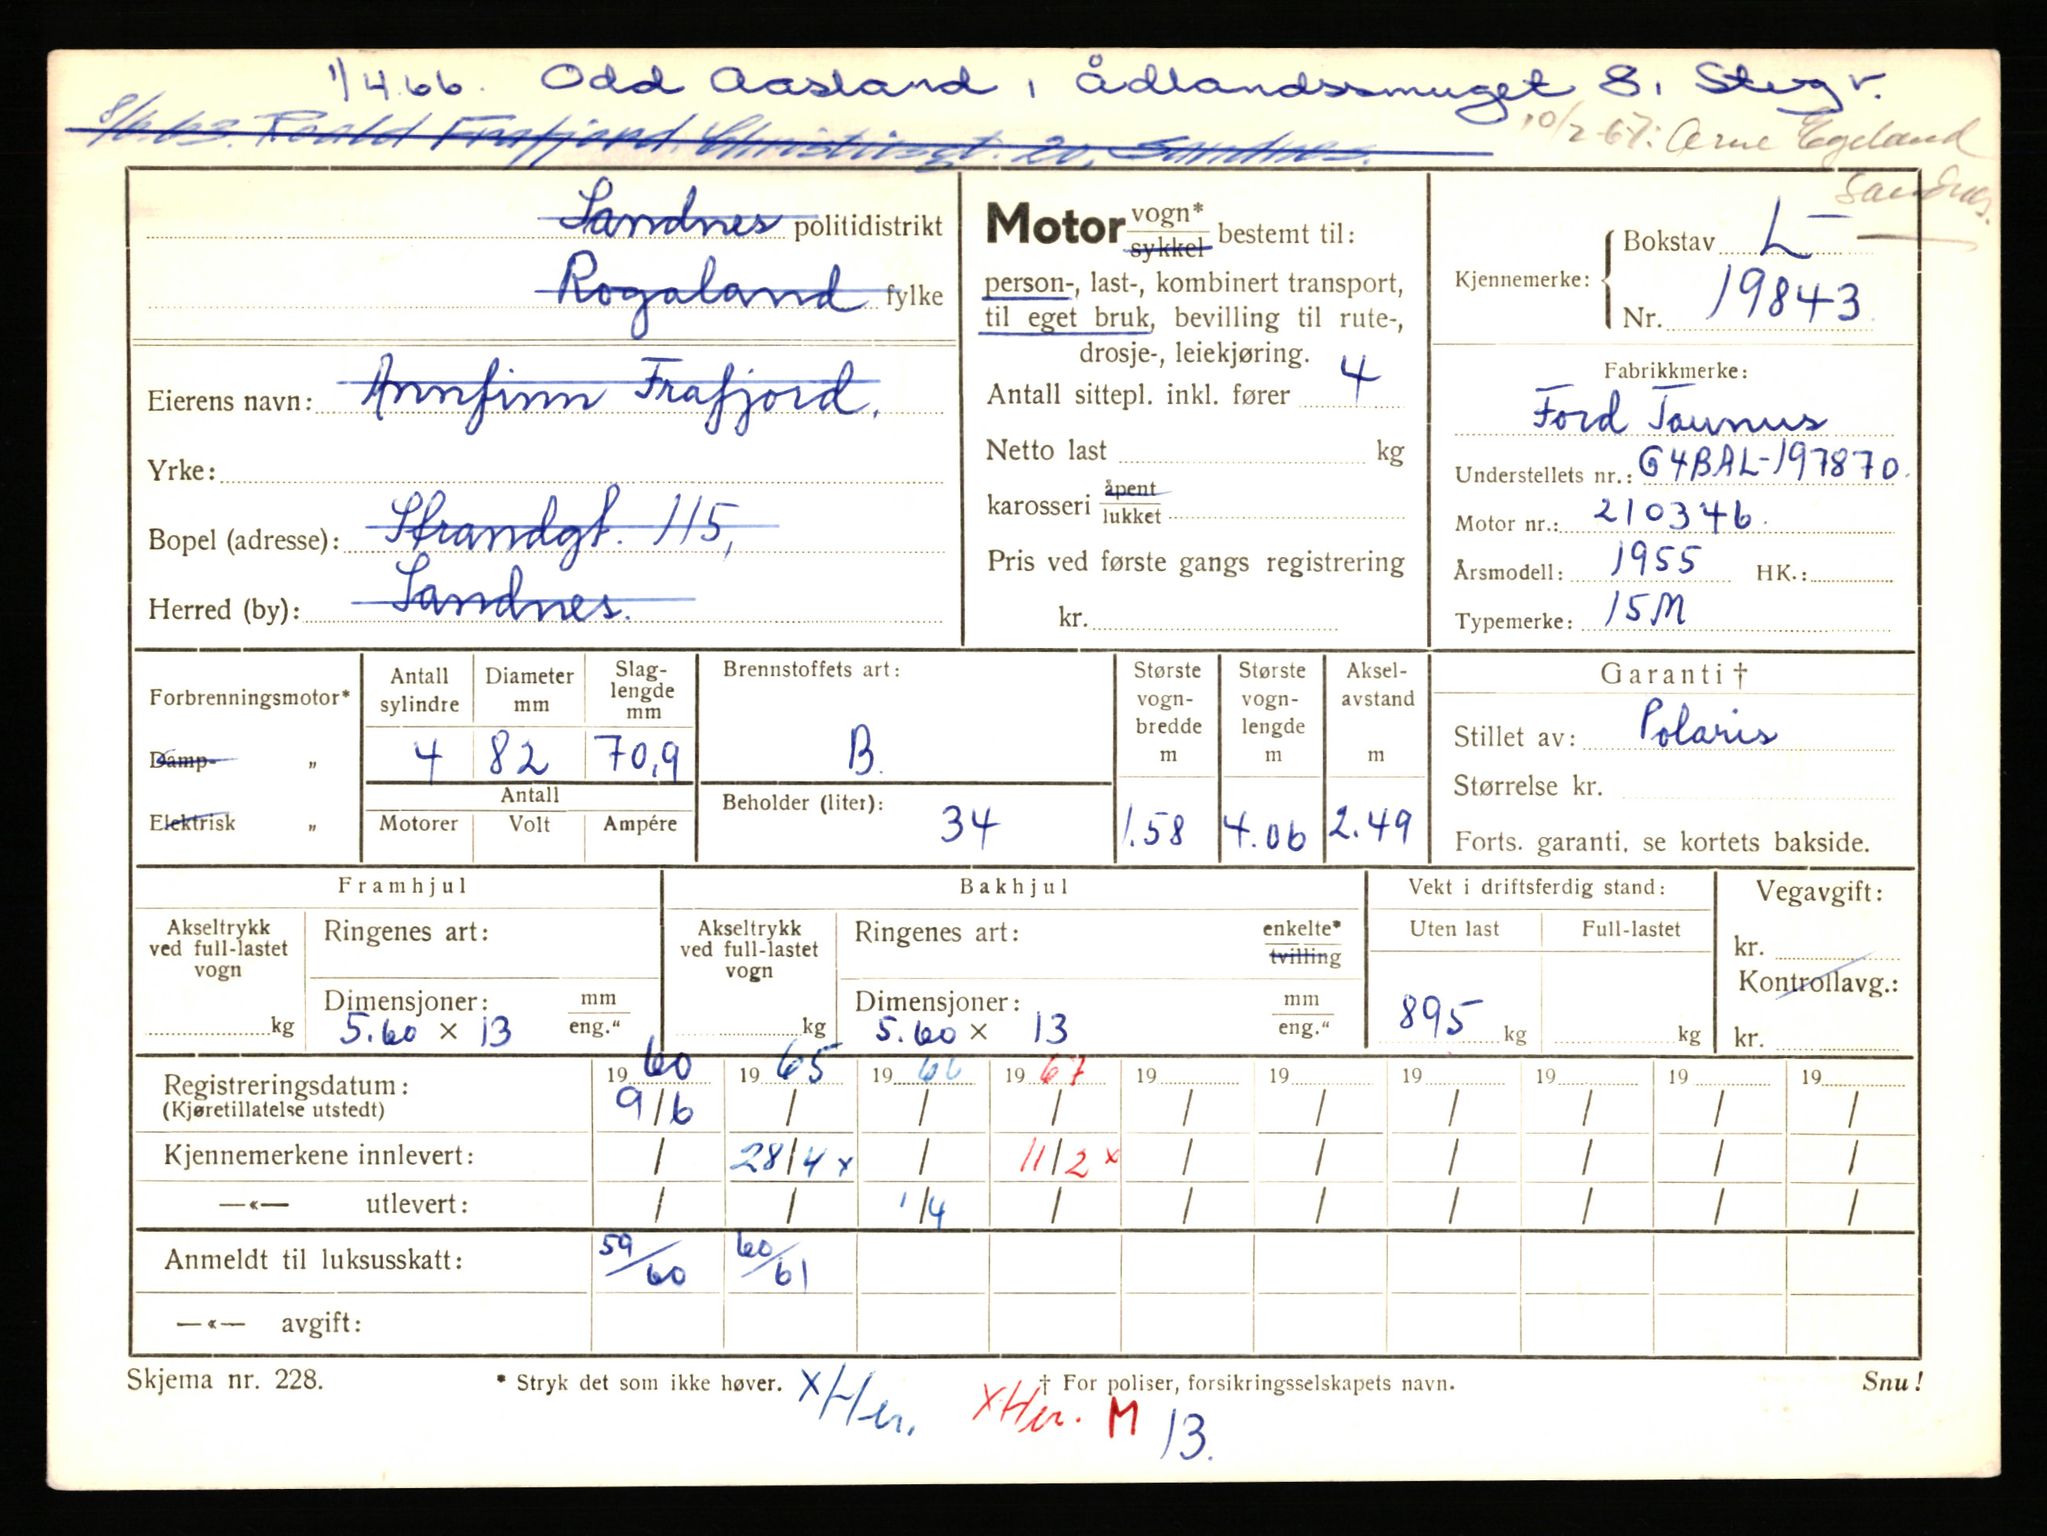 1/4.66. Odd Aasland, Ådlandssmuget 8, Stvgr.
8/6.63. Roald Frafjord, Christinsgt. 20, Sandnes.
10/2-67: Arne Egeland
Sandnes.
Sandnes politidistrikt
Rogaland fylke
Eierens navn: Annfinn Frafjord.
Yrke:
Bopel (adresse): Strandgt. 115,
Herred (by): Sandnes.
Motor vogn* sykkel bestemt til:
person-, last-, kombinert transport,
til eget bruk, bevilling til rute-,
drosje-, leiekjøring.
Antall sittepl. inkl. fører 4
Netto last kg
karosseri åpent lukket
Pris ved første gangs registrering
kr.
Kjennemerke: Bokstav L-
Nr. 19843
Fabrikkmerke:
Ford Taunus
Understellets nr.: G4BAL-197870.
Motor nr.: 210346.
Årsmodell: 1955 HK.:
Typemerke: 15M
Forbrenningsmotor*
Damp- „
Elektrisk „
Antall sylindre 4
Diameter mm 82
Slag-lengde mm 70,9
Antall
Motorer Volt Ampére
Brennstoffets art:
B.
Beholder (liter): 34
Største vogn-bredde m 1.58
Største vogn-lengde m 4.06
Aksel-avstand m 2.49
Garanti †
Stillet av: Polaris
Størrelse kr.
Forts. garanti, se kortets bakside.
Framhjul
Akseltrykk ved full-lastet vogn kg
Ringenes art:
Dimensjoner: mm eng."
5.60 x 13
Bakhjul
Akseltrykk ved full-lastet vogn kg
Ringenes art: enkelte* tvilling
Dimensjoner: mm eng."
5.60 x 13
Vekt i driftsferdig stand:
Uten last Full-lastet
895 kg kg
Vegavgift:
kr.
Kontrollavg.:
kr.
Registreringsdatum: 1960 1965 1966 1967 19 19 19 19 19 19
(Kjøretillatelse utstedt) 9/6 / / / / / / / / /
Kjennemerkene innlevert: / 28/4 x / 11/2 x / / / / / /
—«— utlevert: / / 1/4 / / / / / / /
Anmeldt til luksusskatt: 59/60 60/61
—«— avgift:
Skjema nr. 228. * Stryk det som ikke høver. † For poliser, forsikringsselskapets navn. Snu!
x Her. x Her. M 13.